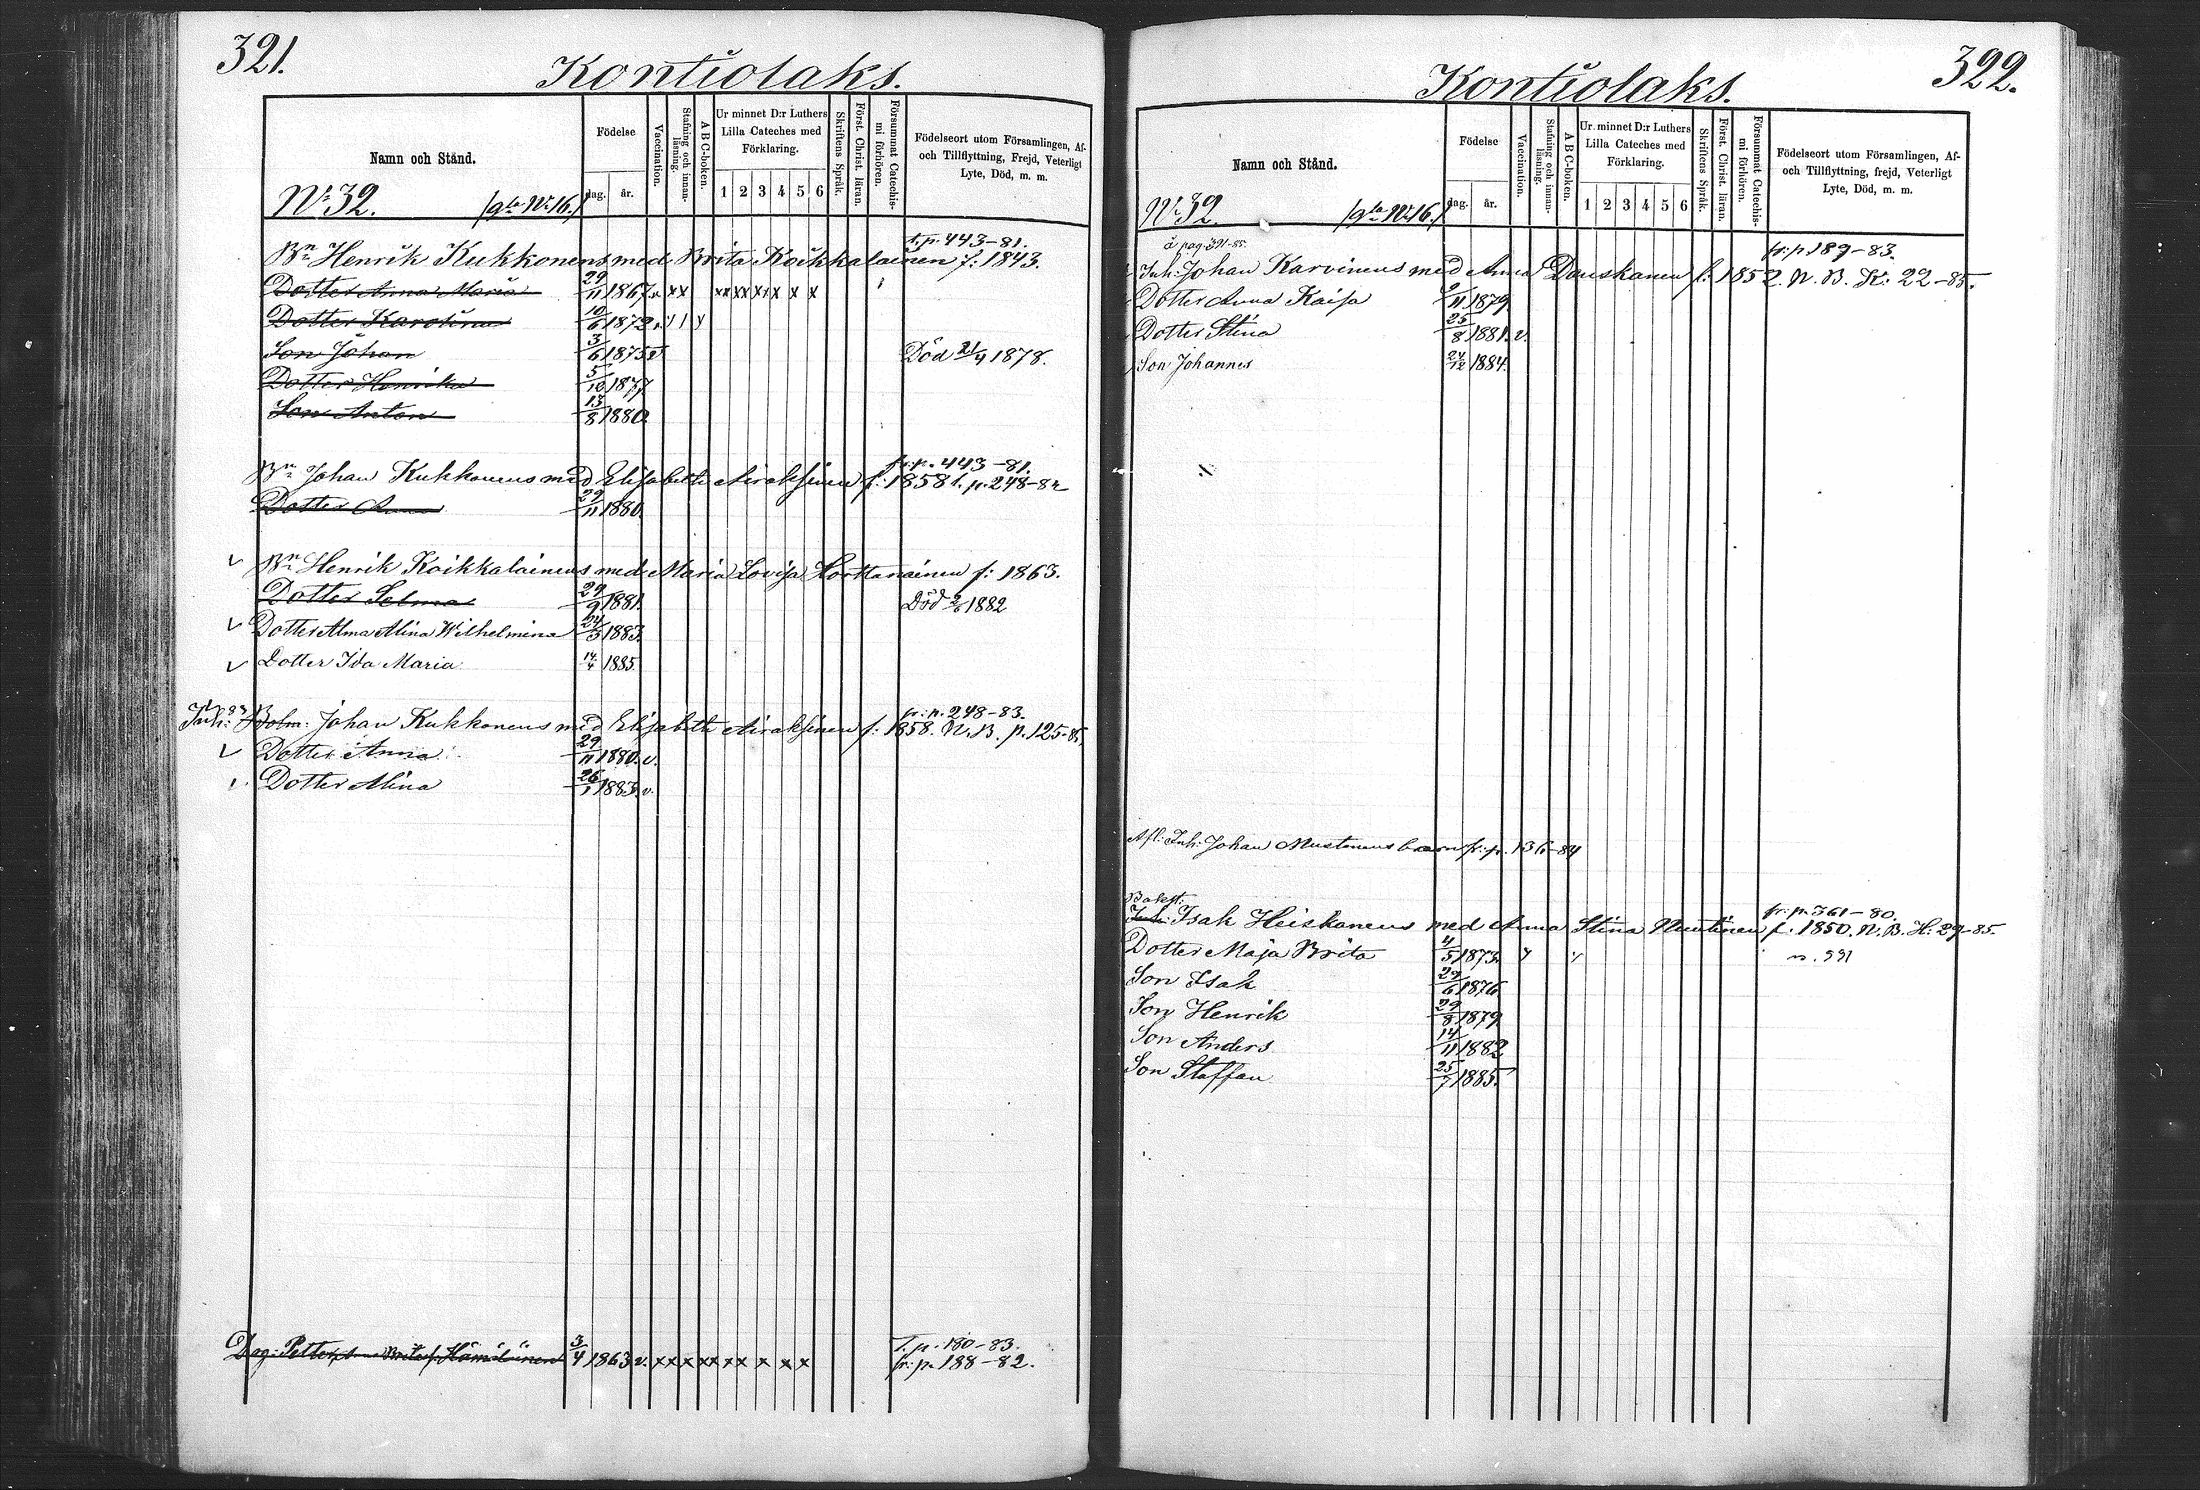 321.
Kontiolaks.
Namn och Stånd.
Födelse
dag. år.
Vaccination.
Stafning och innan-läsning.
A B C-boken.
Ur minnet D:r Luthers Lilla Cateches med Förklaring.
1 2 3 4 5 6
Skriftens Språk.
Först. Christ. läran.
Försummat Catechis-mi förhören.
Födelseort utom Församlingen, Af- och Tillflyttning, Frejd, Veterligt Lyte, Död, m. m.
No 32. /gla No 16./
t. p. 443-81.
Bn Henrik Kukkonens med Brita Koikkalainen f: 1843.
Dotter Anna Maria 29/11 1867 v xx xx xx xx x x
Dotter Karolina 10/6 1872
Son Johan 3/6 1875 v Död 21/4 1878.
Dotter Henrika 5/10 1877
Son Anton 13/8 1880.
fr: p. 443-81.
Bn Johan Kukkonens med Elisabeth Airaksinen f: 1858 t. p. 248-82
Dotter Anna 29/11 1880.
Bn Henrik Koikkalainens med Maria Lovisa Horttanainen f: 1863.
Dotter Selma 29/9 1881. Död 2/6 1882
Dotter Alma Alina Wilhelmina 24/3 1883.
Dotter Ida Maria 14/4 1885.
fr: p. 248-83.
Inh: Johan Kukkonens med Elisabeth Airaksinen f: 1858. N. B. p. 125-85.
Dotter Anna 29/11 1880. v.
Dotter Alina 26/1 1883. v.
T. p. 180-83.
3/4 1863 v. xx x xx xx x x x fr: p. 188-82.
322.
Kontiolaks.
Namn och Stånd.
Födelse
dag. år.
Vaccination.
Stafning och innan-läsning.
A B C-boken.
Ur minnet D:r Luthers Lilla Cateches med Förklaring.
1 2 3 4 5 6
Skriftens Språk.
Först. Christ. läran.
Försummat Catechis-mi förhören.
Födelseort utom Församlingen, Af- och Tillflyttning, frejd, Veterligt Lyte, Död, m. m.
No 32. /gla No 16./
å pag. 391-85. fr: p 189-83.
Inh: Johan Karvinens med Anna Danskanen f: 1852. N. B. K: 22-85.
Dotter Anna Kaisa 1879
Dotter Stina 25/8 1881. v.
Son Johannes 24/12 1884.
Afl: Inh: Johan Mustonens barn fr: p. 136-84
Bakst: fr: p. 361-80.
Inh: Isak Heiskanens med Anna Stina Nuutinen f. 1850. N. B. H: 29-85.
Dotter Maja Brita 4/5 1873
Son Isak 29/6 1876
Son Henrik 29/8 1879
Son Anders 14/11 1882
Son Staffan 25/7 1885